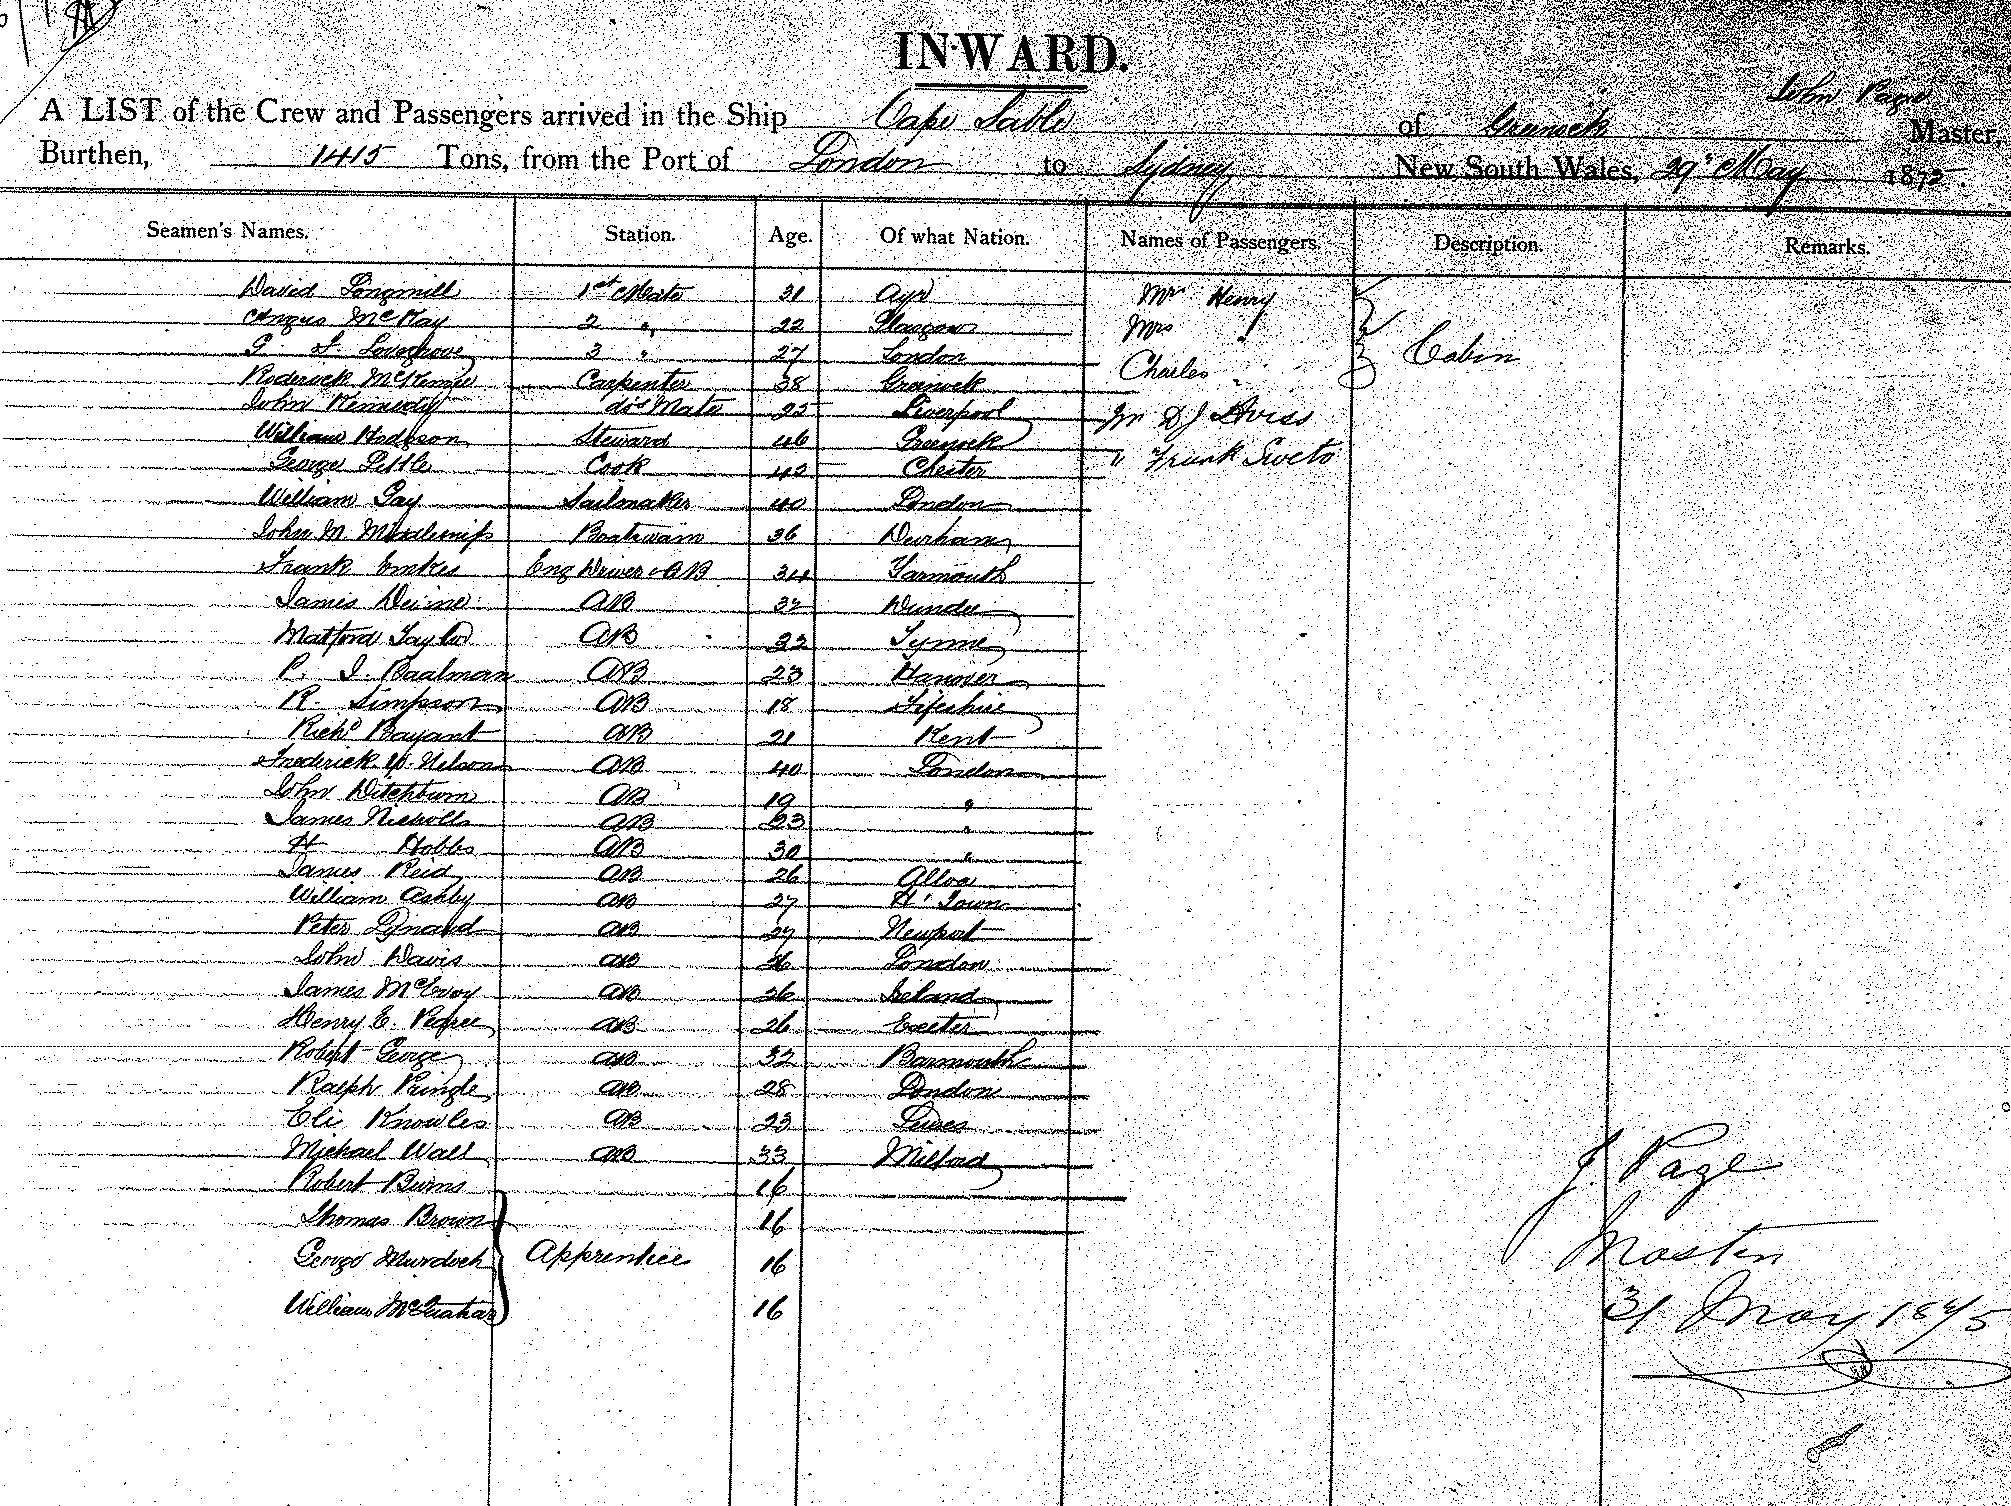 INWARD.
John Page
A LIST of the Crew and Passengers arrived in the Ship Cape Sable of Greenock Master,
Burthen, 1415 Tons, from the Port of London to Sydney New South Wales, 29th May 1875.
Seamen's Names. Station. Age. Of what Nation. Names of Passengers. Description. Remarks.
David Longmill 1st Mate 31 Ayr Mr Henry
Angus McKay 2 " 22 Glasgow Mrs "
3 " 27 London Charles " Cabin
Roderick McKenzie Carpenter 38 Greenock
John Kennedy do Mate 25 Liverpool Mr D J
William Hodgson Steward 46 Greenock " Frank
George Little Cook 42 Chester
William Gay Sailmaker 40 London
John M Boatswain 36 Durham
Frank Emkes Eng Driver & AB 34 Yarmouth
James AB 32 Dundee
Matford Taylor AB 32
P. J. Baalman AB 23 Hanover
R. Simpson AB 18 Fifeshire
Richd Bayant AB 21 Kent
Frederick W. Nelson AB 40 London
John Ditchburn AB 19 "
James Nicholls AB 23 "
H Hobbs AB 30 "
James Reid AB 26 Alloa
William Ashby AB 27 Town
Peter Lynard AB 27 Newport
John Davis AB 36 London
James McEvoy AB 26 Ireland
Henry E. Pearce AB 26 Exeter
Robert George AB 32 Barmouth
Ralph Pringle AB 28 London
Eli Knowles AB 23 Lewes
Michael Wall AB 33 Milford
Robert Burns 16
Thomas Brown 16
George Murdoch Apprentice 16
William 16
J. Page
Master
31 May 1875